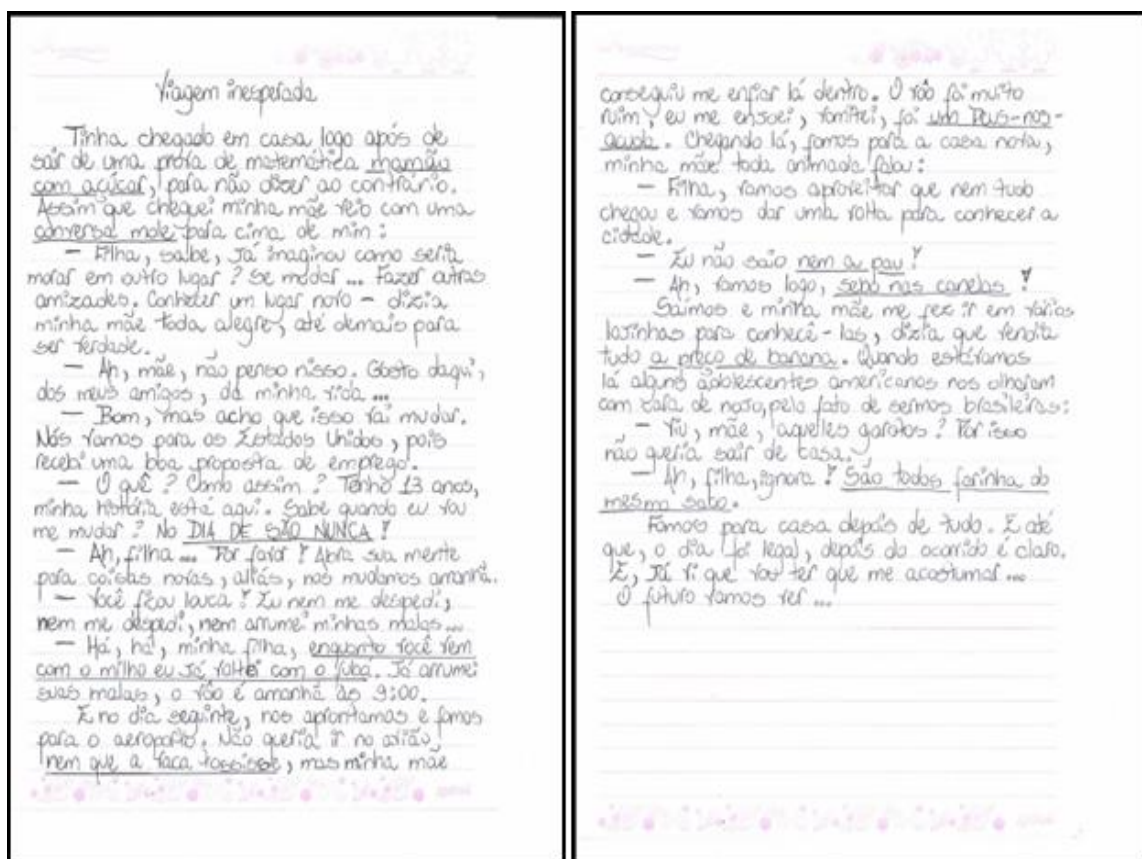 Viagem inesperada
Tinha chegado em casa logo após de
sair de uma prova de matemática mamão
com açúcar, para não dizer ao contrário.
Assim que cheguei minha mãe veio com uma
conversa mole para cima de min:
— Filha, sabe, já imaginou como seria
morar em outro lugar? Se mudar... Fazer outras
amizades. Conhecer um lugar novo - dizia
minha mãe toda alegre, até demais para
ser verdade.
— Ah, mãe, não penso nisso. Gosto daqui,
dos meus amigos, da minha vida...
— Bom, mas acho que isso vai mudar.
Nós vamos para os Estados Unidos, pois
recebi uma boa proposta de emprego.
— O quê? Como assim? Tenho 13 anos,
minha história está aqui. Sabe quando eu vou
me mudar? No DIA DE SÃO NUNCA!
— Ah, filha... Por favor! Abra sua mente
para coisas novas, aliás, nos mudamos amanhã.
— Você ficou louca! Eu nem me despedi,
nem me despedi, nem arrumei minhas malas...
— Há, há, minha filha, enquanto você vem
com o milho eu já voltei com o fubá. Já arrumei
suas malas, o vôo é amanhã às 9:00.
E no dia seguinte, nos aprontamos e fomos
para o aeroporto. Não queria ir no avião
nem que a vaca tossisse, mas minha mãe
conseguiu me enfiar lá dentro. O vôo foi muito
ruim, eu me ensoei, vomitei, foi um Deus-nos-
acuda. Chegando lá, fomos para a casa nova,
minha mãe toda animada falou:
— Filha, vamos aproveitar que nem tudo
chegou e vamos dar uma volta para conhecer a
cidade.
— Eu não saio nem a pau!
— Ah, vamos logo, sebo nas canelas!
Saímos e minha mãe me fez ir em várias
lojinhas para conhecê-las, dizia que vendia
tudo a preço de banana. Quando estávamos
lá alguns adolescentes americanos nos olhavam
com cara de nojo, pelo fato de sermos brasileiras:
— Viu, mãe, aqueles garotos? Por isso
não queria sair de casa.
— Ah, filha, ignora! São todos farinha do
mesmo saco.
Fomos para casa depois de tudo. E até
que, o dia foi legal, depois do ocorrido é claro.
E, já vi que vou ter que me acostumar...
O futuro vamos ver...